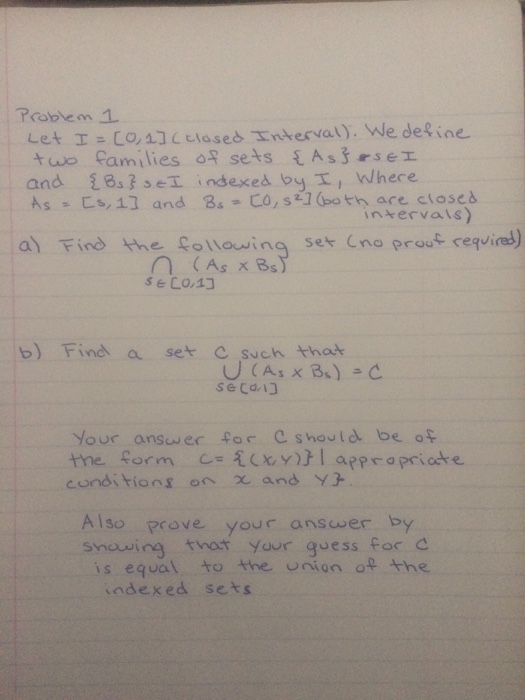 Problem 1
Let I = [0,1] (closed Interval). We define
two families of sets {As} s∈I
and {Bs} s∈I indexed by I, Where
As = [s, 1] and Bs = [0, s²] (both are closed
intervals)
a) Find the following set (no proof required)
∩ (As x Bs)
s∈[0,1]
b) Find a set C such that
∪ (As x Bs) = C
s∈[0,1]
Your answer for C should be of
the form C = {(x,y)}| appropriate
conditions on x and y}.
Also prove your answer by
showing that your guess for C
is equal to the union of the
indexed sets